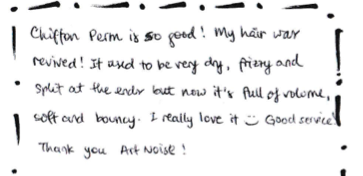 Chiffon Perm is so good! My hair was
revived! It used to be very dry, frizzy and
split at the ends but now it's full of volume,
soft and bouncy. I really love it Good service!
Thank you Art Noise!